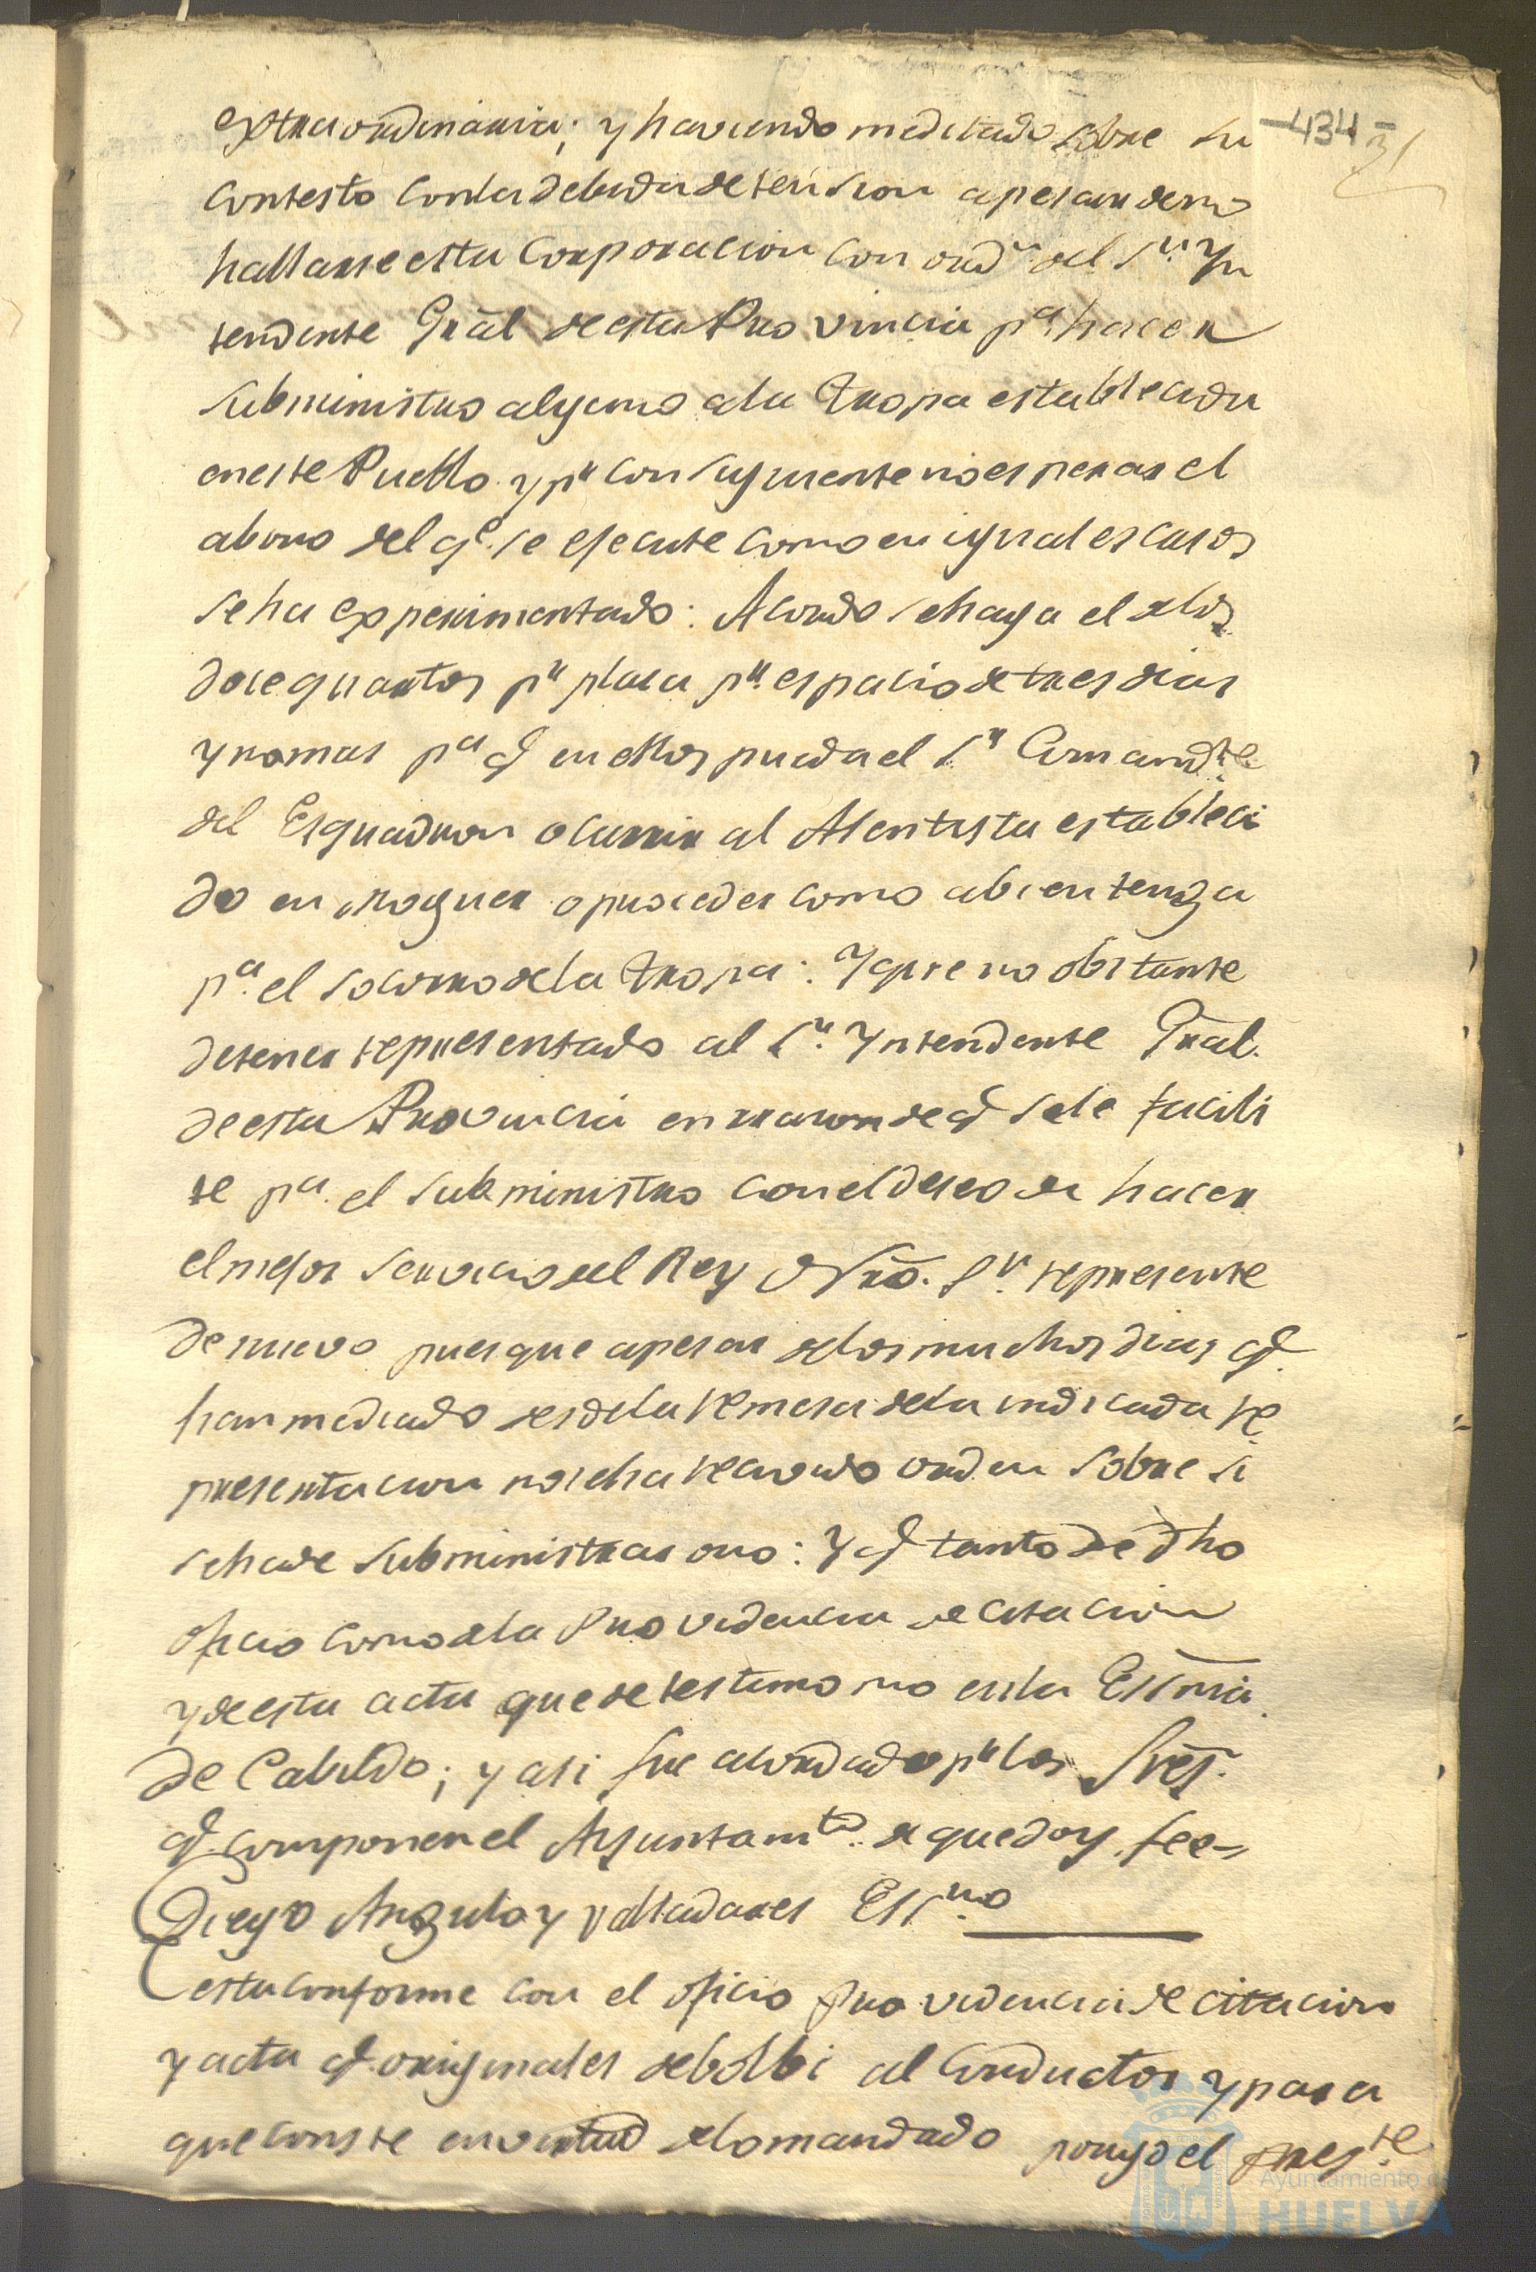 extraordinaria; y haviendo meditado sobre su
contesto con la debida detension apesar de no
hallarse esta Corporacion con ordn del Sr. Yn
tendente Gral de esta Provincia pa. hacer
subministro alguno a la tropa establecida
en este Pueblo y pr consiguiente no esperar el
abono del qe. se ejecute como en iguales casos
se ha experimentado: Acordo se haga el de los
dose quartos pr plasa pr. espacio de tres dias
y no mas pa q en ellos pueda el Sr Comandte.
del Esquadron ocurrir al Asentista estableci
do en Moguer o proceder como abien tenga
pa. el socorro de la tropa: Y que no obstante
de tener representado al Sr. Yntendente Gral.
de esta Provincia en rason de q se le facili
te pa. el subministro con el deseo de hacer
el mejor servicio del Rey Nro. Sr. represente
de nuevo pues que apesar de los muchos dias q.
han mediado desde la remesa de la indicada re
presentacion no se ha recivido orden sobre si
se ha de subministrar o no: Y q tanto de dho
oficio como de la Providencia de citacion
y de esta acta quede testimonio en la Essnia.
de Cabildo; y asi fue acordado pr los Sres.
q. componen el Ayuntamto. de que doy fee=
Diego Angulo y Valladares Essno
esta conforme con el oficio Providencia de citacion
y acta q. originales debolbi al Conductor y para
que conste en virtud de lo mandado pongo el preste.
-434-
31
Ayuntamiento de
HUELVA